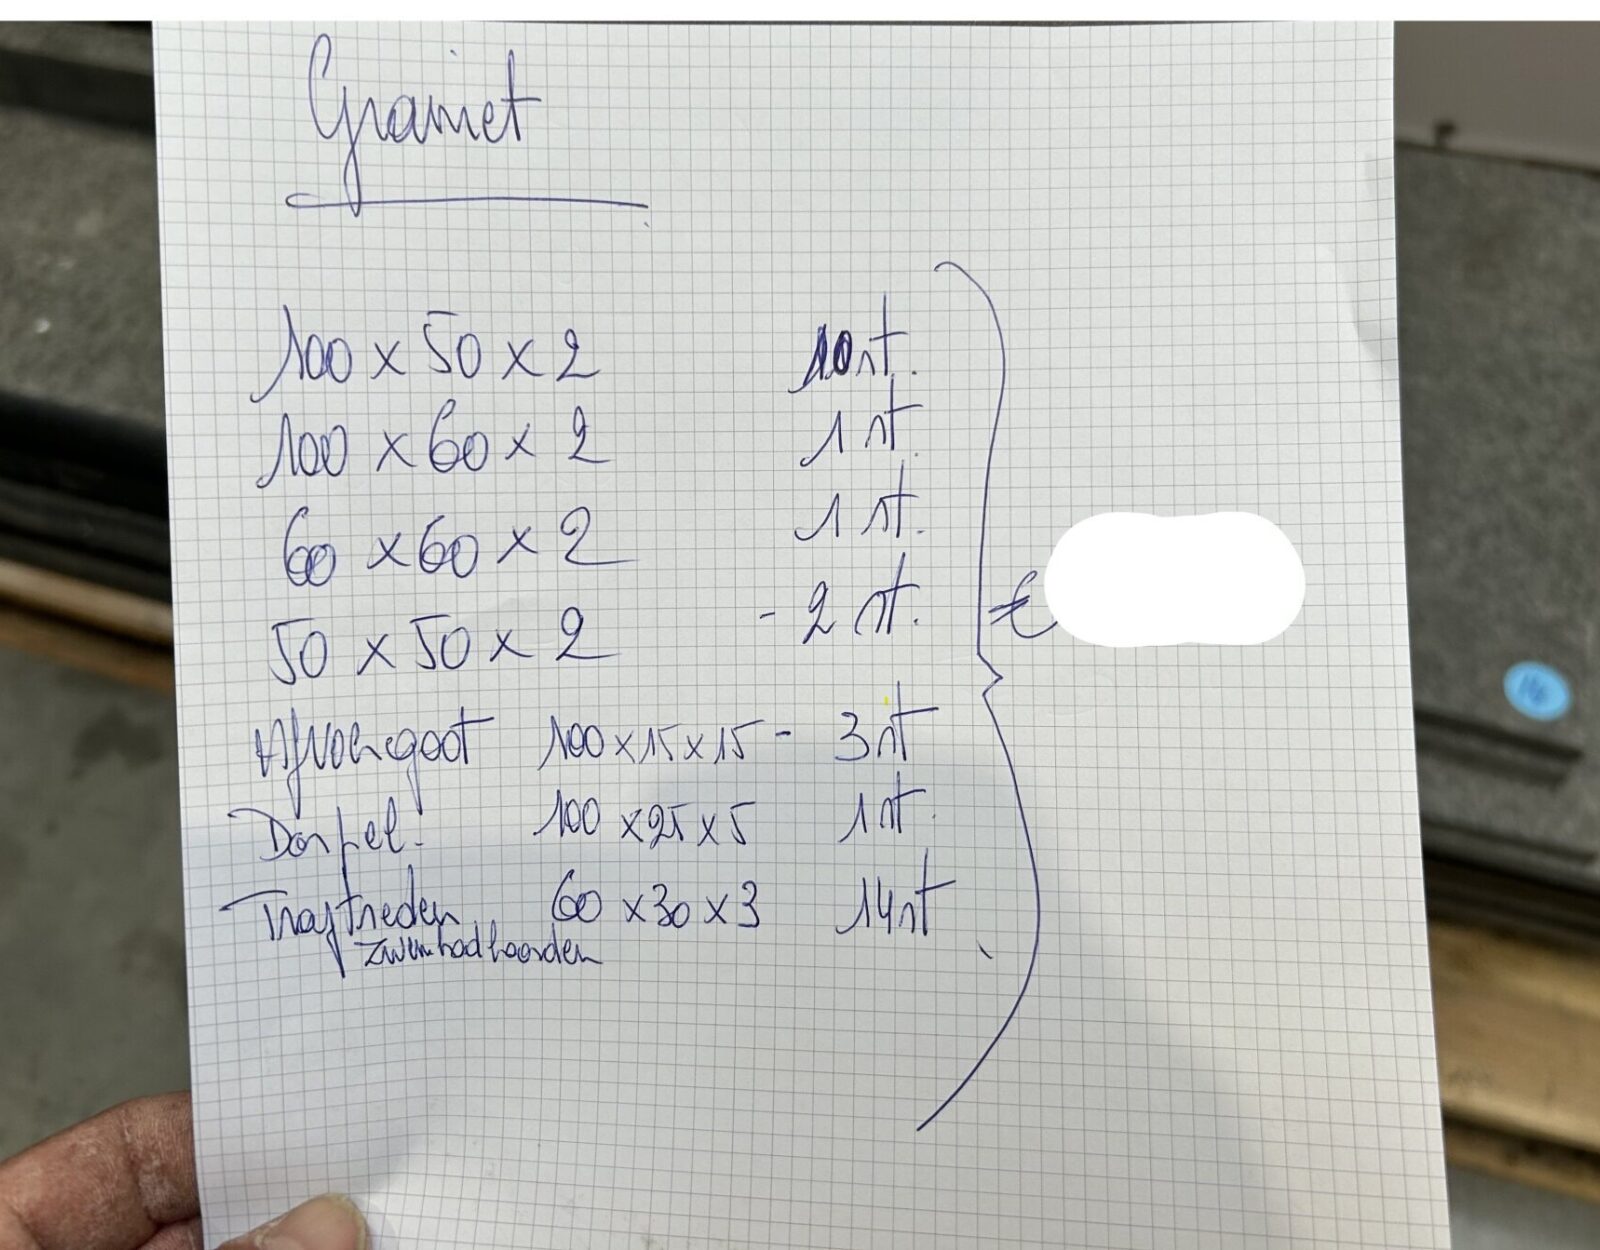 Graniet
100 x 50 x 2 10 st.
100 x 60 x 2 1 st.
60 x 60 x 2 1 st.
50 x 50 x 2 - 2 st.
€
Afvoergoot 100 x 15 x 15 - 3 st
Dorpel. 100 x 25 x 5 1 st.
Traptreden 60 x 30 x 3 14 st
zwembadboorden